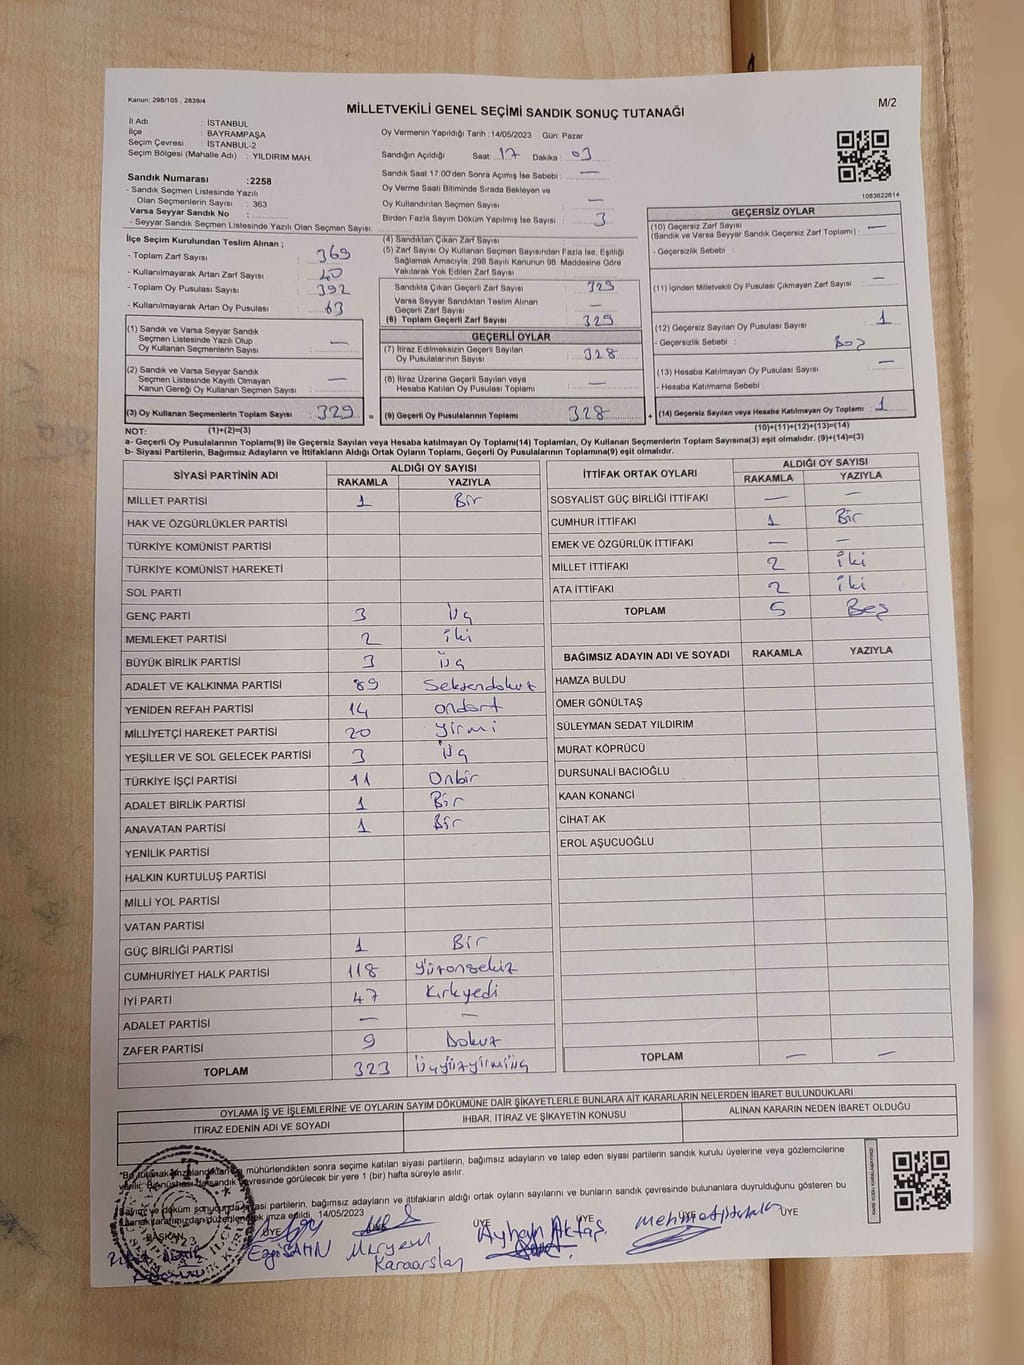 Kanun: 298/105 , 2839/4
MİLLETVEKİLİ GENEL SEÇİMİ SANDIK SONUÇ TUTANAĞI
M/2
İl Adı : İSTANBUL
İlçe : BAYRAMPAŞA
Seçim Çevresi : İSTANBUL-2
Seçim Bölgesi (Mahalle Adı) : YILDIRIM MAH.
Sandık Numarası :2258
- Sandık Seçmen Listesinde Yazılı
Olan Seçmenlerin Sayısı : 363
Varsa Seyyar Sandık No :
- Seyyar Sandık Seçmen Listesinde Yazılı Olan Seçmen Sayısı.
İlçe Seçim Kurulundan Teslim Alınan ;
- Toplam Zarf Sayısı : 369
- Kullanılmayarak Artan Zarf Sayısı : 40
- Toplam Oy Pusulası Sayısı : 392
- Kullanılmayarak Artan Oy Pusulası : 63
(1) Sandık ve Varsa Seyyar Sandık
Seçmen Listesinde Yazılı Olup
Oy Kullanan Seçmenlerin Sayısı : —
(2) Sandık ve Varsa Seyyar Sandık
Seçmen Listesinde Kayıtlı Olmayan
Kanun Gereği Oy Kullanan Seçmen Sayısı : —
(3) Oy Kullanan Seçmenlerin Toplam Sayısı : 329 =
Oy Vermenin Yapıldığı Tarih :14/05/2023 Gün: Pazar
Sandığın Açıldığı Saat: 17 Dakika : 03
Sandık Saat 17.00'den Sonra Açımış İse Sebebi : —
Oy Verme Saati Bitiminde Sırada Bekleyen ve
Oy Kullandırılan Seçmen Sayısı : —
Birden Fazla Sayım Döküm Yapılmış İse Sayısı : 3
(4) Sandıktan Çıkan Zarf Sayısı :
(5) Zarf Sayısı Oy Kullanan Seçmen Sayısından Fazla İse, Eşitliği
Sağlamak Amacıyla, 298 Sayılı Kanunun 98. Maddesine Göre
Yakılarak Yok Edilen Zarf Sayısı
Sandıkta Çıkan Geçerli Zarf Sayısı : 329
Varsa Seyyar Sandıktan Teslim Alınan
Geçerli Zarf Sayısı : —
(6) Toplam Geçerli Zarf Sayısı : 329
GEÇERLİ OYLAR
(7) İtiraz Edilmeksizin Geçerli Sayılan
Oy Pusulalarının Sayısı : 328
(8) İtiraz Üzerine Geçerli Sayılan veya
Hesaba Katılan Oy Pusulası Toplamı : —
(9) Geçerli Oy Pusulalarının Toplamı : 328 +
1083622614
GEÇERSİZ OYLAR
(10) Geçersiz Zarf Sayısı
(Sandık ve Varsa Seyyar Sandık Geçersiz Zarf Toplamı) : —
- Geçersizlik Sebebi :
(11) İçinden Milletvekili Oy Pusulası Çıkmayan Zarf Sayısı : —
(12) Geçersiz Sayılan Oy Pusulası Sayısı : 1
- Geçersizlik Sebebi : Boş
(13) Hesaba Katılmayan Oy Pusulası Sayısı : —
- Hesaba Katılmama Sebebi :
(14) Geçersiz Sayılan veya Hesaba Katılmayan Oy Toplamı : 1
NOT: (1)+(2)=(3)
(10)+(11)+(12)+(13)=(14)
a- Geçerli Oy Pusulalarının Toplamı(9) ile Geçersiz Sayılan veya Hesaba katılmayan Oy Toplamı(14) Toplamları, Oy Kullanan Seçmenlerin Toplam Sayısına(3) eşit olmalıdır. (9)+(14)=(3)
b- Siyasi Partilerin, Bağımsız Adayların ve İttifakların Aldığı Ortak Oyların Toplamı, Geçerli Oy Pusulalarının Toplamına(9) eşit olmalıdır.
SİYASİ PARTİNİN ADI ALDIĞI OY SAYISI
RAKAMLA YAZIYLA
MİLLET PARTİSİ 1 Bir
HAK VE ÖZGÜRLÜKLER PARTİSİ
TÜRKİYE KOMÜNİST PARTİSİ
TÜRKİYE KOMÜNİST HAREKETİ
SOL PARTİ
GENÇ PARTİ 3 Üç
MEMLEKET PARTİSİ 2 iki
BÜYÜK BİRLİK PARTİSİ 3 Üç
ADALET VE KALKINMA PARTİSİ 89 Seksendokuz
YENİDEN REFAH PARTİSİ 14 ondört
MİLLİYETÇİ HAREKET PARTİSİ 20 yirmi
YEŞİLLER VE SOL GELECEK PARTİSİ 3 Üç
TÜRKİYE İŞÇİ PARTİSİ 11 Onbir
ADALET BİRLİK PARTİSİ 1 Bir
ANAVATAN PARTİSİ 1 Bir
YENİLİK PARTİSİ
HALKIN KURTULUŞ PARTİSİ
MİLLİ YOL PARTİSİ
VATAN PARTİSİ
GÜÇ BİRLİĞİ PARTİSİ 1 Bir
CUMHURİYET HALK PARTİSİ 118 yüzonsekiz
İYİ PARTİ 47 kırkyedi
ADALET PARTİSİ — —
ZAFER PARTİSİ 9 Dokuz
TOPLAM 323 üçyüzyirmiüç
İTTİFAK ORTAK OYLARI ALDIĞI OY SAYISI
RAKAMLA YAZIYLA
SOSYALİST GÜÇ BİRLİĞİ İTTİFAKI — —
CUMHUR İTTİFAKI 1 Bir
EMEK VE ÖZGÜRLÜK İTTİFAKI — —
MİLLET İTTİFAKI 2 iki
ATA İTTİFAKI 2 iki
TOPLAM 5 Beş
BAĞIMSIZ ADAYIN ADI VE SOYADI RAKAMLA YAZIYLA
HAMZA BULDU
ÖMER GÖNÜLTAŞ
SÜLEYMAN SEDAT YILDIRIM
MURAT KÖPRÜCÜ
DURSUNALİ BACIOĞLU
KAAN KONANCİ
CİHAT AK
EROL AŞUCUOĞLU
TOPLAM — —
OYLAMA İŞ VE İŞLEMLERİNE VE OYLARIN SAYIM DÖKÜMÜNE DAİR ŞİKAYETLERLE BUNLARA AİT KARARLARIN NELERDEN İBARET BULUNDUKLARI
İTİRAZ EDENİN ADI VE SOYADI İHBAR, İTİRAZ VE ŞİKAYETİN KONUSU ALINAN KARARIN NEDEN İBARET OLDUĞU
*Bu tutanak imzalandıktan mühürlendikten sonra seçime katılan siyasi partilerin, bağımsız adayların ve talep eden siyasi partilerin sandık kurulu üyelerine veya gözlemcilerine
verilir. sandık çevresinde görülecek bir yere 1 (bir) hafta süreyle asılır.
Sayım ve döküm sonucunda siyasi partilerin, bağımsız adayların ve ittifakların aldığı ortak oyların sayılarını ve bunların sandık çevresinde bulunanlara duyrulduğunu gösteren bu
tutanak tarafımızdan düzenlenerek imza edildi. 14/05/2023
BAŞKAN ÜYE ÜYE ÜYE ÜYE
Ezgi ŞAHİN Meryem Karaarslan Ayhan Aktaş